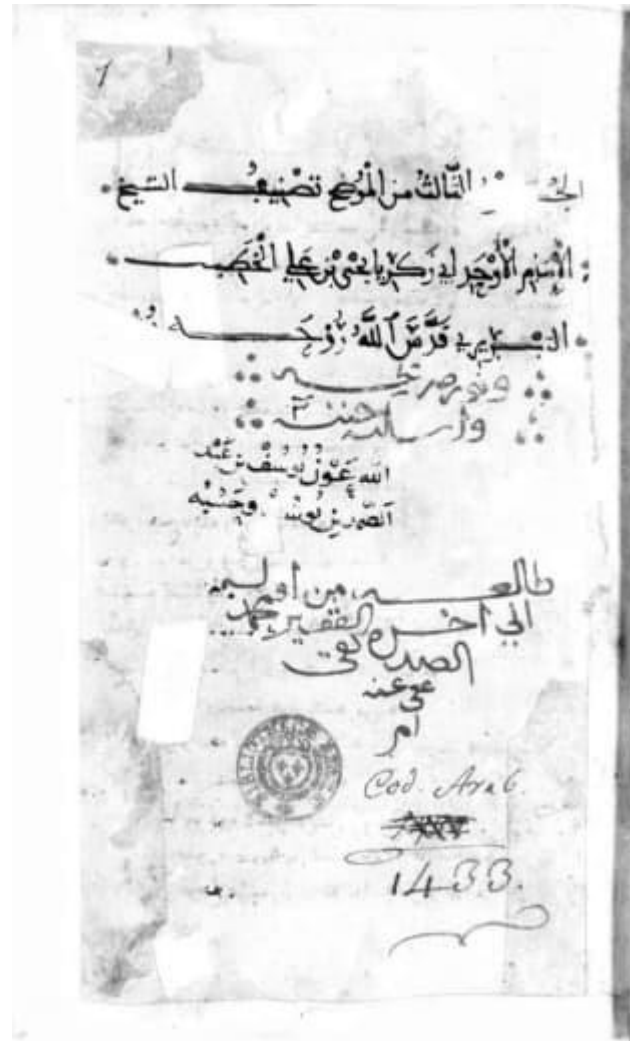 1
الجزء الثالث من الموضح تصنيف الشيخ
الإمام الأوحد أبي زكريا يحيى بن علي الخطيب
التبريزي قدس الله روحه
ونور ضريحه
الله عون يوسف بن عبد
الصمد بن يوسف وحسبه
طالعه من أوله
إلى آخره الفقير محمد
الصدر
عفي عنه
Cod. Arab.
1433.